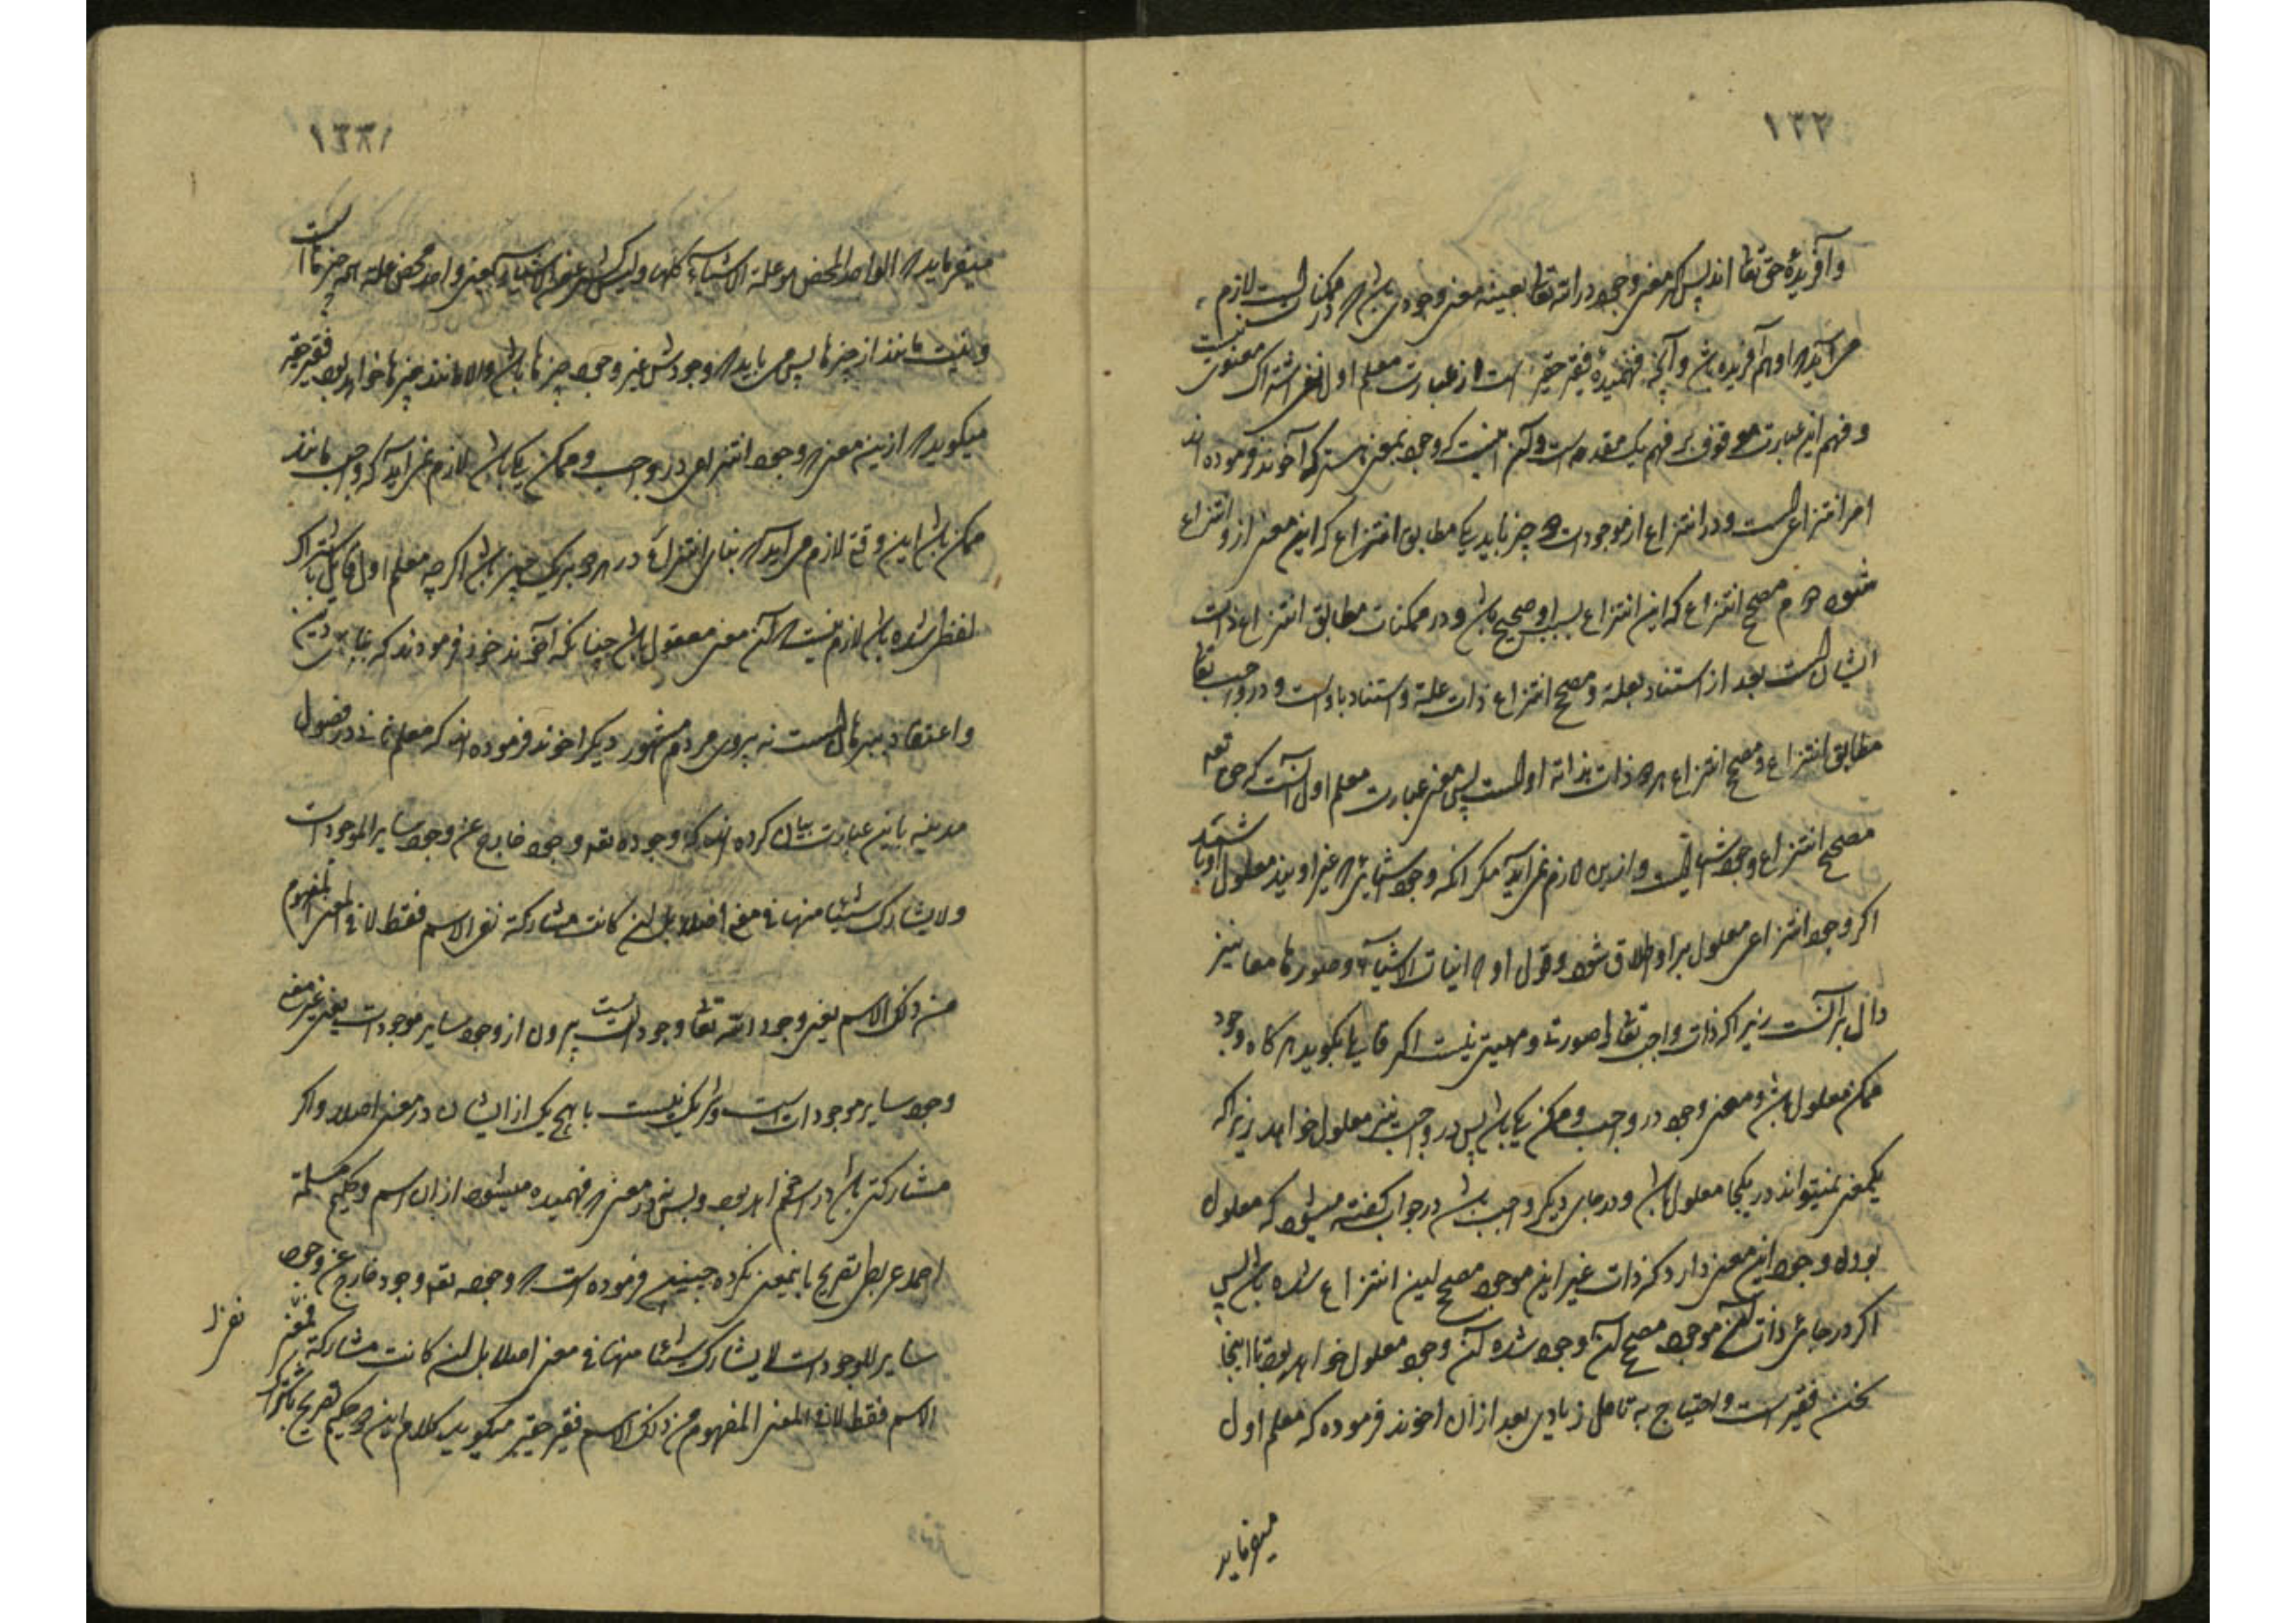 ۱۳۳
و آفریدهٔ حق تعا اند پس اگر معنی وجود در الله تعا بعینه معنی وجودی باشد که در ممکنات است لازم
می آید که او هم آفریده باشد و آنچه فهمیدهٔ فقیر حقیر است از عبارت معلم اول نفی اشتراک معنوی نیست
و فهم این عبارت موقوف بر فهم یک مقدمه است و آن اینست که وجود بمعنی که آخوند فرموده اند
امر انتزاعی است و در انتزاع از موجودات دو چیز باید یکی مطابق انتزاع که این معنی ازو انتزاع
شود دوم مصحح انتزاع که این انتزاع بسبب او صحیح باشد و در ممکنات مطابق انتزاع ذات
ایشان است بعد از استناد بعلة و مصحح انتزاع ذات علة و استناد باوست و در واجب تعا
مطابق انتزاع و مصحح انتزاع هر دو ذات بذاته اوست پس معنی عبارت معلم اول آنست که حق تعه
مصحح انتزاع وجود اشیا است و ازین لازم نمی آید مگر آنکه وجود اشیائی که غیر اویند معلول او باشند
اگر وجود انتزاعی معلول بر او اطلاق شود و قول او که انیات الاشیاء و صورها معا نیز
دال بر آنست زیرا که ذات واجب تعا را صورت و مهیتی نیست اگر قایلی بگوید هرگاه وجود
ممکن معلول باشد و معنی وجود در واجب و ممکن یکی باشد پس در واجب نیز معلول خواهد زیرا که
یکمعنی نمیتواند در یکجا معلول باشد و در جای دیگر واجب باشد در جواب گفته میشود که معلول
بودن وجود این معنی دارد که ذات غیر این موجود مصحح این انتزاع شده باشد پس
اگر در جائی ذات این موجود مصحح آن وجود شده آن وجود معلول نخواهد بود تا اینجا
سخن فقیر است و احتیاج به تامل زیادی بعد از آن اخوند فرموده که معلم اول
میفرماید
میفرماید که الواحد المحض هو علة الاشیاء کلها و لیس کشیء من الاشیاء یعنی واحد محض علة همه چیزهاست
و نیست مانند از چیزها پس می باید که وجودش غیر وجود چیزها باشد و الا مانند چیزها خواهد بود فقیر حقیر
میگوید که ازین معنی که وجود انتزاعی در واجب و ممکن یکی باشد لازم نمی آید که واجب مانند
ممکن باشد این وقتی لازم می آید که بنای انتزاع در هر دو بر یک چیز باشد اگر چه معلم اول قایل باشتراک
لفظی شده باشد لازم نیست که آن معنی معقول باشد چنانکه آخوند خود فرمودند که بنای دین
و اعتقاد ببرهان است نه پیروی مردم مشهور دیگر اخوند فرموده اند که معلم ثانی در فصول
مدینه باین عبارت بیان کرده اند که وجوده تعه وجود خارج عن وجود سایر الموجودات
و لا یشارک شیئا منها فی معنی اصلا بل ان کانت مشارکة ففی الاسم فقط لا فی المعنی المفهوم
من ذلک الاسم یعنی وجود الله تعا وجودیست بیرون از وجود سایر موجودات یعنی غیر معنی
وجود سایر موجودات است و شریک نیست با هیچ یک از ایشان در معنی اصلا و اگر
مشارکتی باشد در اسم خواهد بود و بس نه در معنی که فهمیده میشود از ان اسم و حکیم مسلمة
احمد عریطی تصریح باینمعنی نکرده چنین فرموده است که وجوده تعه وجود خارج عن وجود
سایر الموجودات لا یشارک شیئا منها فی معنی اصلا بل ان کانت مشارکة
الاسم فقط لا فی المعنی المفهوم من ذلک الاسم فقیر حقیر میگوید کلام این دو حکیم تصریح باشتراک